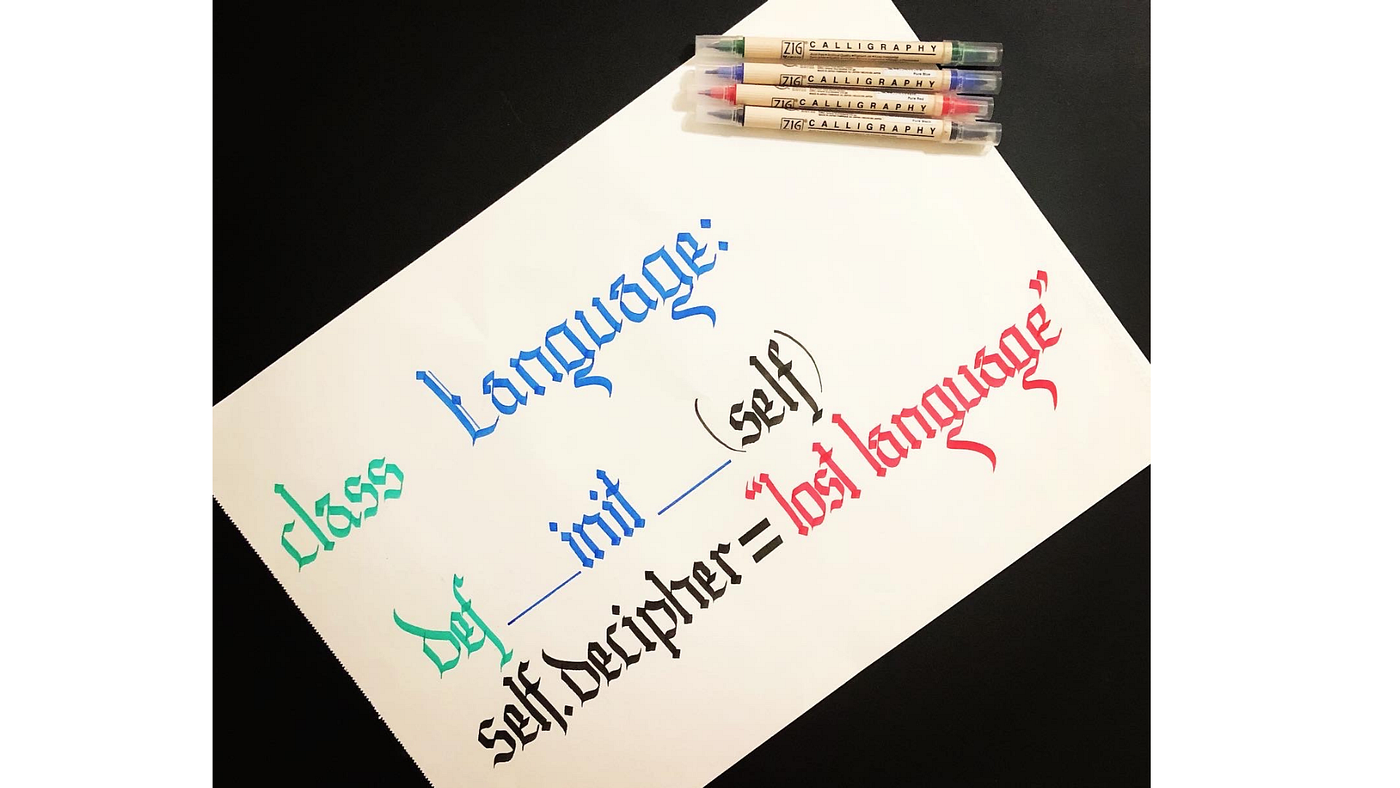 ZIG CALLIGRAPHY
ZIG CALLIGRAPHY
Pure Blue
ZIG CALLIGRAPHY
Pure Red
ZIG CALLIGRAPHY
Pure Black
class Language:
def __init__(self)
self.decipher = "lost language"